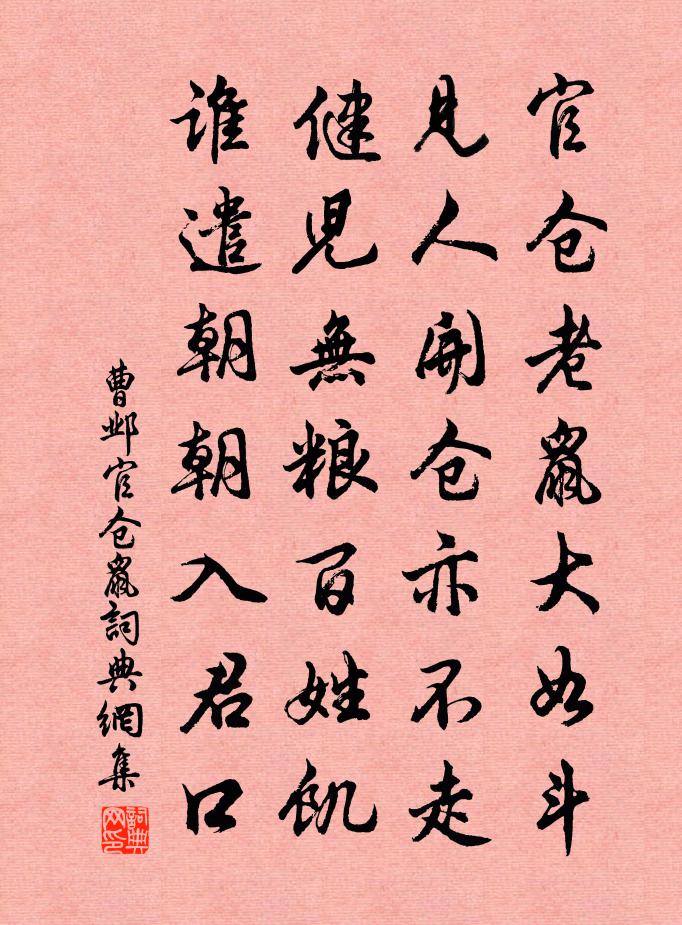 官仓老鼠大如斗
见人開仓亦不走
健児無粮百姓飢
谁遣朝朝入君口
曹邺官仓鼠詞典網集
詞典网印